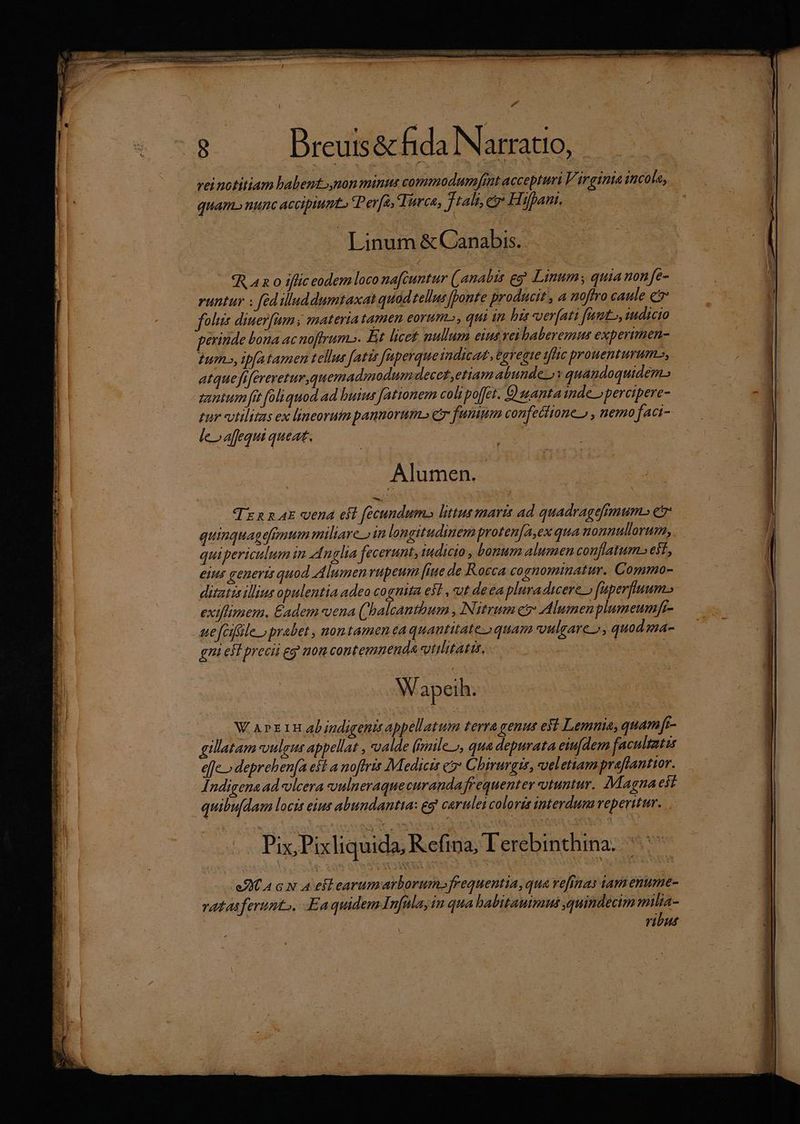 8 Breuis & fida Narratio,
rei notitiam habent, non minus commodum sint accepturi Virginiæ incolæ,
quam nunc accipiunt Persæ, Turcæ, Itali, & Hispani.
Linum & Canabis.
RARO istic eodem loco nascuntur Canabis & Linum; quia non se-
runtur : sed illud dumtaxat quod tellus sponte producit, a nostro caule &
foliis diuersum, materia tamen eorum, qui in his versati sunt, iudicio
perinde bona ac nostrum. Et licet nullum eius rei haberemus experimen-
tum, ipsa tamen tellus satis superque indicat, egregie istic prouenturum,
atque si sereretur, quemadmodum decet, etiam abunde: quandoquidem
tantum sit soli quod ad huius sationem coli posset. Quanta inde percipere-
tur vtilitas ex lineorum pannorum & funium confectione, nemo faci-
le assequi queat.
Alumen.
TERRAE vena est secundum littus maris ad quadragesimum &
quinquagesimum miliare in longitudinem protensa, ex qua nonnullorum,
qui periculum in Anglia fecerunt, iudicio, bonum alumen conflatum est,
eius generis quod Alumen rupeum siue de Rocca cognominatur. Commo-
ditatis illius opulentia adeo cognita est, vt de ea plura dicere superfluum
existimem. Eadem vena Chalcanthum, Nitrum & Alumen plumeum si-
ue scissile præbet, non tamen ea quantitate quam vulgare, quod ma-
gni est precii & non contemnendæ vtilitatis.
Wapeih.
WAPEIH ab indigenis appellatum terræ genus est Lemniæ, quam si-
gillatam vulgus appellat, valde simile, quæ depurata eiusdem facultatis
esse deprehensa est a nostris Medicis & Chirurgis, vel etiam præstantior.
Indigenæ ad vlcera vulneraque curanda frequenter vtuntur. Magna est
quibusdam locis eius abundantia: & cærulei coloris interdum reperitur.
Pix, Pix liquida, Resina, Terebinthina.
MAGNA est earum arborum frequentia, quæ resinas iam enume-
ratas ferunt. Ea quidem Insula, in qua habitauimus, quindecim milia-
ribus